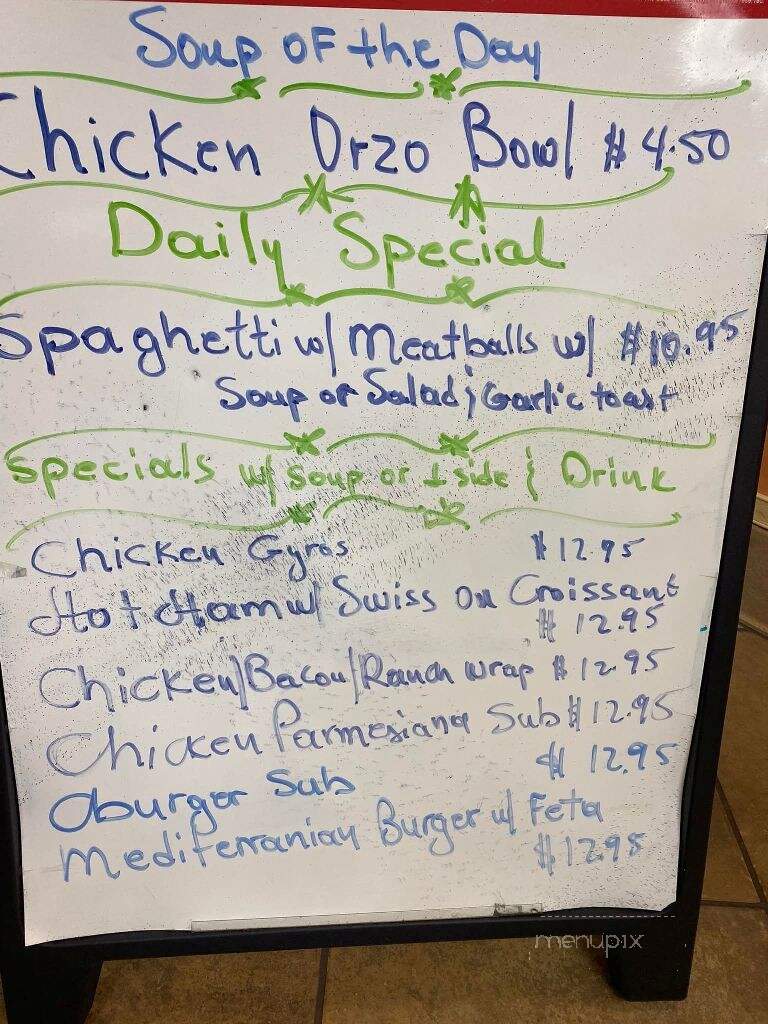 Soup of the Day
Chicken Orzo Bowl $4.50
Daily Special
Spaghetti w/ Meatballs w/ $10.95
Soup or Salad & Garlic toast
Specials w/ Soup or 1 side & Drink
Chicken Gyros $12.95
Hot Ham w/ Swiss on Croissant
$12.95
Chicken/Bacon/Ranch wrap $12.95
Chicken Parmesiana Sub $12.95
Aburger Sub $12.95
Mediterranian Burger w/ Feta
$12.95
menupix